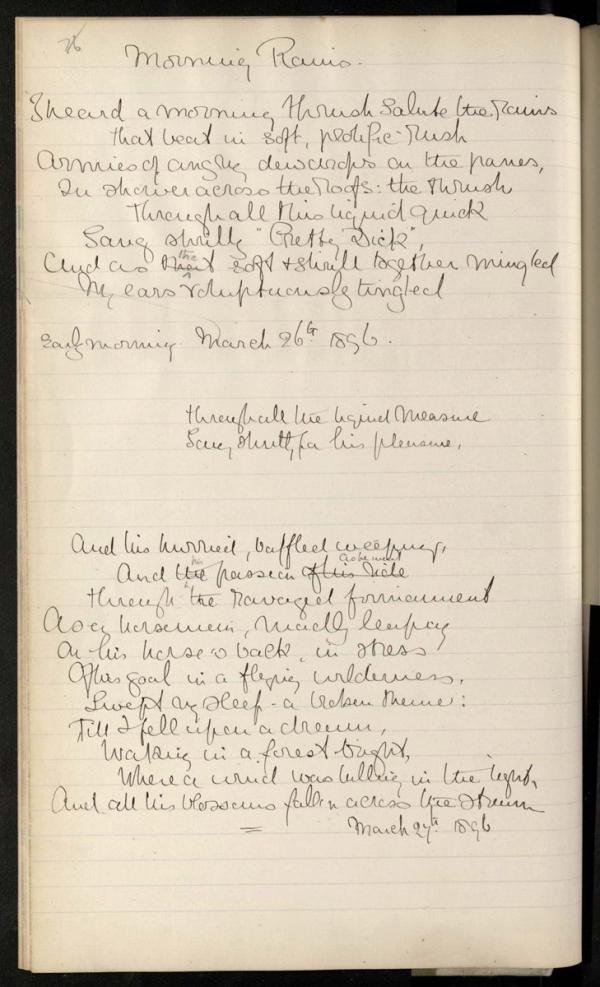 76
Morning Rains.
I heard a morning thrush salute the Rains
That beat in soft, prolific rush
Armies of angry dewdrops on the panes,
In shower across the roofs: the thrush
Through all this liquid quick
Sang shrilly "Pretty Dick",
the
And as soft & shrill together mingled
My ears voluptuously tingled
Early morning March 26th 1896.
through all the liquid measure
Sang shrilly for his pleasure.
And his hurried, baffled weeping,
his achement
And the passion of his ride
through the ravaged firmament
As a horseman, madly leaping
On his horse's back, in stress
Of his goal in a flying wilderness,
Swept my sleep - a broken theme:
Till I fell upon a dream,
Waking in a forest bright,
Where a wind was lulling in the light,
And all his blossoms fallen across the stream
March 27th 1896